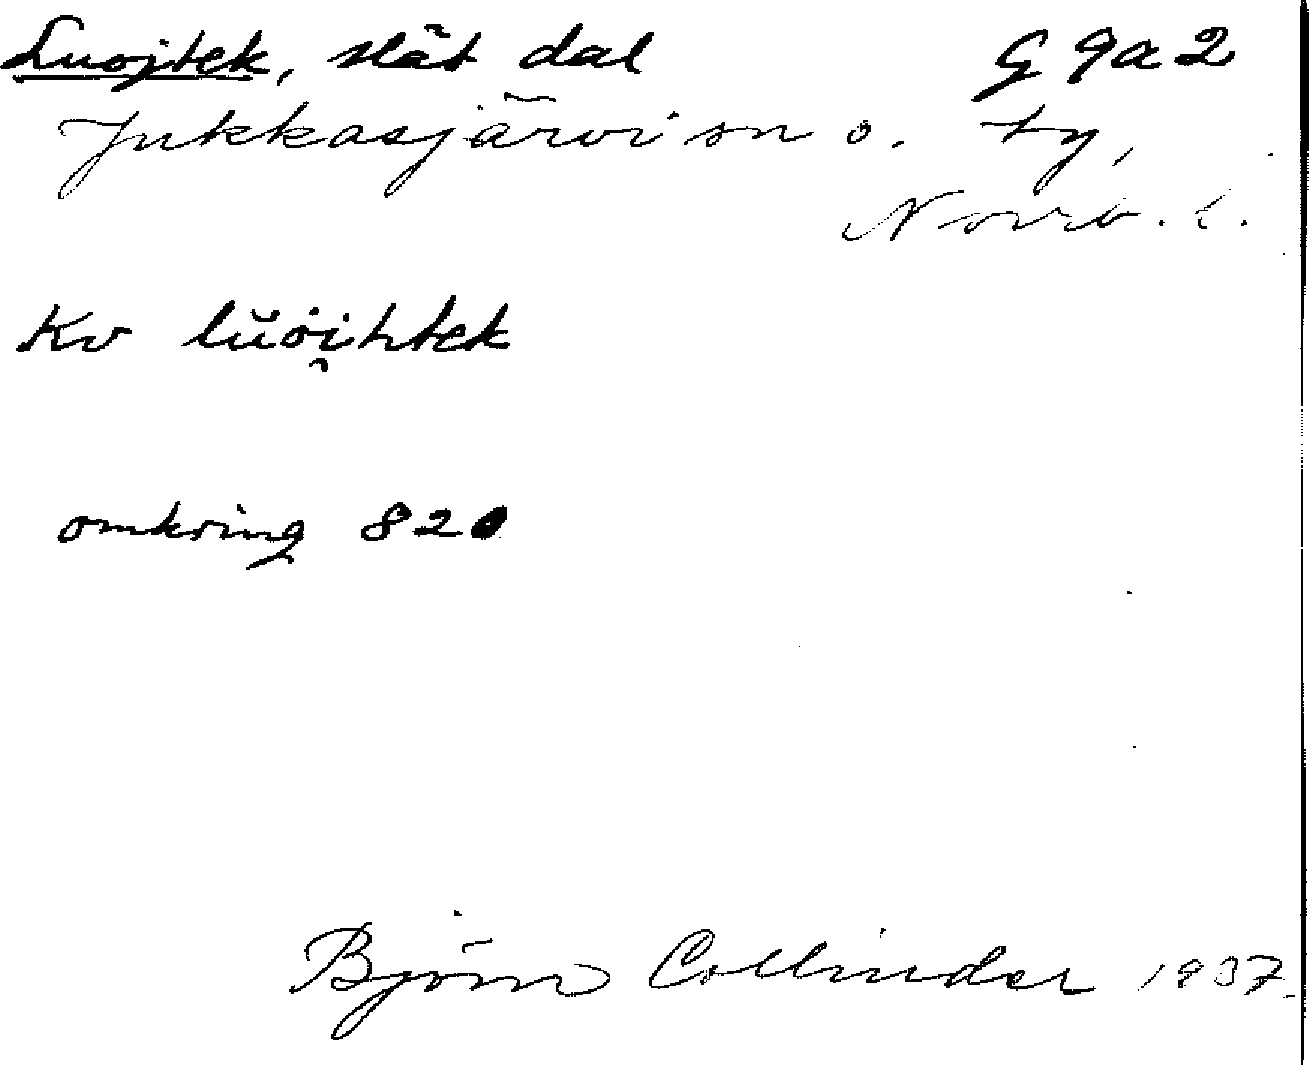 Luojtek, slät dal G 9a2
Jukkasjärvi sn o. ty,
Norrb. l.
Kv lŭȯi̯htek
omkring 820
Björn Collinder 1937